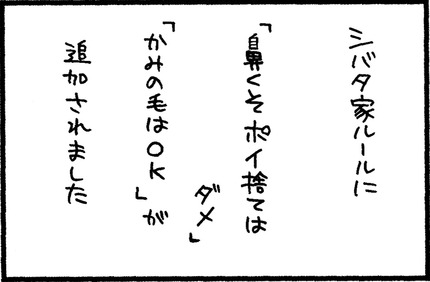 シバタ家ルールに
「鼻くそポイ捨ては
ダメ」
「かみの毛はOK」が
追加されました